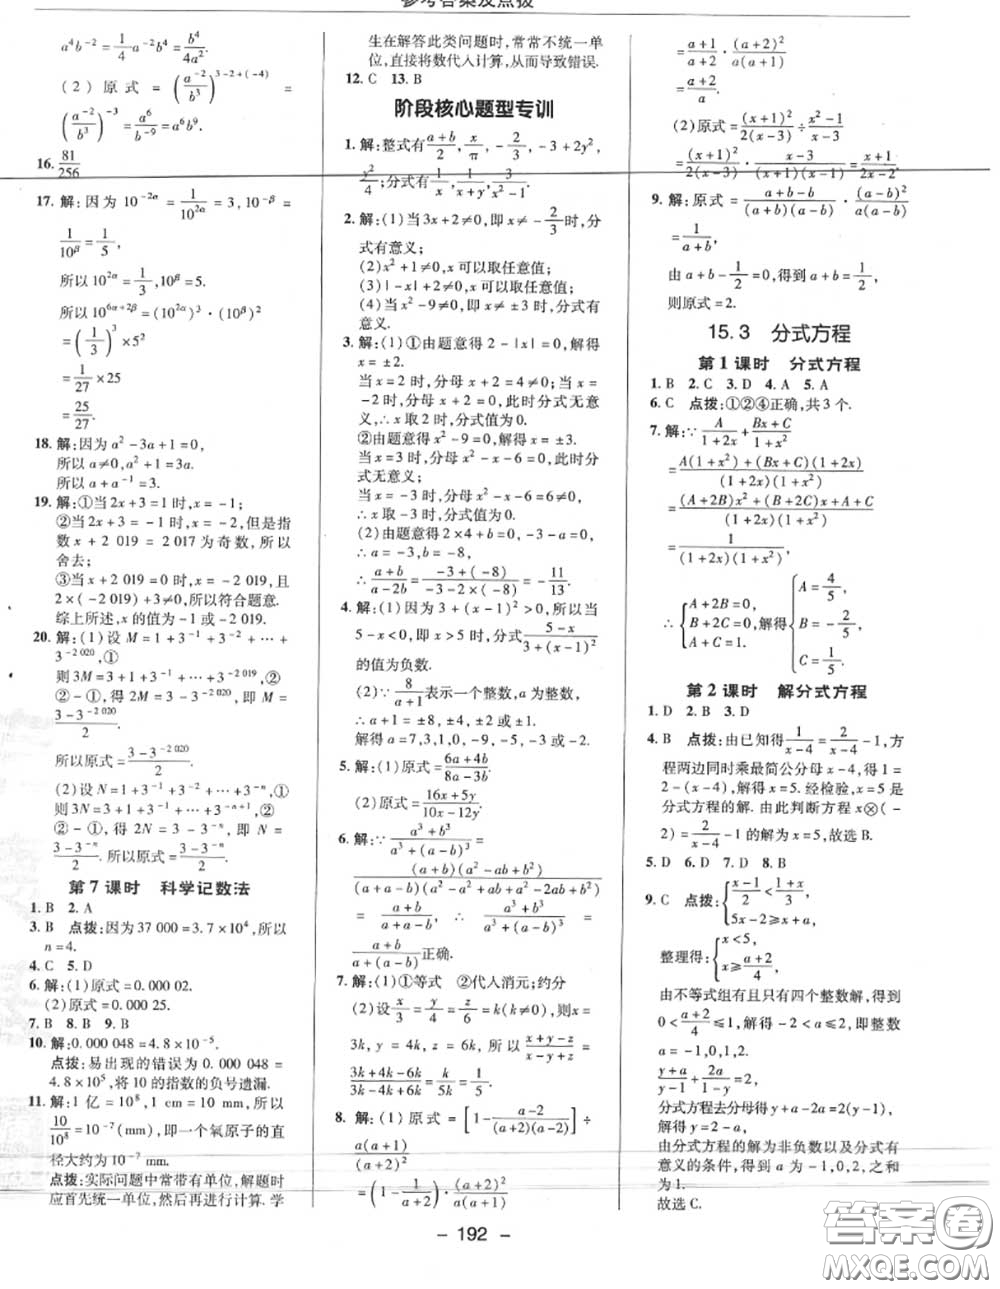 参考答案及点拨
a⁴b⁻²=1/4 a⁻²b⁴=b⁴/4a².
(2)原式=(a⁻²/b³)³⁻²⁺⁽⁻⁴⁾=
(a⁻²/b³)⁻³=a⁶/b⁻⁹=a⁶b⁹.
16. 81/256
17. 解:因为10⁻²ᵅ=1/10²ᵅ=3,10⁻ᵝ=
1/10ᵝ=1/5,
所以10²ᵅ=1/3,10ᵝ=5.
所以10⁶ᵅ⁺²ᵝ=(10²ᵅ)³·(10ᵝ)²
=(1/3)³×5²
=1/27×25
=25/27.
18. 解:因为a²-3a+1=0,
所以a≠0,a²+1=3a.
所以a+a⁻¹=3.
19. 解:①当2x+3=1时,x=-1;
②当2x+3=-1时,x=-2,但是指
数x+2 019=2 017为奇数,所以
舍去;
③当x+2 019=0时,x=-2 019,且
2×(-2 019)+3≠0,所以符合题意.
综上所述,x的值为-1或-2 019.
20. 解:(1)设M=1+3⁻¹+3⁻²+…+
3⁻²⁰²⁰,①
则3M=3+1+3⁻¹+…+3⁻²⁰¹⁹,②
②-①,得2M=3-3⁻²⁰²⁰,即M=
(3-3⁻²⁰²⁰)/2.
所以原式=(3-3⁻²⁰²⁰)/2.
(2)设N=1+3⁻¹+3⁻²+…+3⁻ⁿ,①
则3N=3+1+3⁻¹+…+3⁻ⁿ⁺¹,②
②-①,得2N=3-3⁻ⁿ,即N=
(3-3⁻ⁿ)/2.所以原式=(3-3⁻ⁿ)/2.
第7课时 科学记数法
1. B 2. A
3. B 点拨:因为37 000=3.7×10⁴,所以
n=4.
4. C 5. D
6. 解:(1)原式=0.000 02.
(2)原式=0.000 25.
7. B 8. B 9. B
10. 解:0.000 048=4.8×10⁻⁵.
点拨:易出现的错误为0.000 048=
4.8×10⁵,将10的指数的负号遗漏.
11. 解:1亿=10⁸,1 cm=10 mm,所以
10/10⁸=10⁻⁷(mm),即一个氧原子的直
径大约为10⁻⁷ mm.
点拨:实际问题中常带有单位,解题时
应首先统一单位,然后再进行计算.学
生在解答此类问题时,常常不统一单
位,直接将数代入计算,从而导致错误.
12. C 13. B
阶段核心题型专训
1. 解:整式有(a+b)/2,x/π,-2/3,-3+2y²,
y²/4;分式有1/x,1/(x+y),3/(x²-1).
2. 解:(1)当3x+2≠0,即x≠-2/3时,分
式有意义;
(2)x²+1≠0,x可以取任意值;
(3)|-x|+2≠0,x可以取任意值;
(4)当x²-9≠0,即x≠±3时,分式有
意义.
3. 解:(1)①由题意得2-|x|=0,解得
x=±2.
当x=2时,分母x+2=4≠0,
当x=-2时,分母x+2=0,此时分式无意
义,∴x取2时,分式值为0.
②由题意得x²-9=0,解得x=±3.
当x=3时,分母x²-x-6=0,此时分
式无意义;
当x=-3时,分母x²-x-6=6≠0.
∴x取-3时,分式值为0.
(2)由题意得2×4+b=0,-3-a=0,
∴a=-3,b=-8,
∴(a+b)/(a-2b)=(-3+(-8))/(-3-2×(-8))=-11/13.
4. 解:(1)因为3+(x-1)²>0,所以当
5-x<0,即x>5时,分式(5-x)/(3+(x-1)²)
的值为负数.
(2)∵8/(a+1)表示一个整数,a为整数,
∴a+1=±8,±4,±2或±1.
解得a=7,3,1,0,-9,-5,-3或-2.
5. 解:(1)原式=(6a+4b)/(8a-3b).
(2)原式=(16x+5y)/(10x-12y).
6. 解:∵(a³+b³)/(a³+(a-b)³)=
(a+b)(a²-ab+b²)/((a+a-b)(a²-a²+ab+a²-2ab+b²))
=(a+b)/(a+a-b), ∴(a³+b³)/(a³+(a-b)³)=
(a+b)/(a+(a-b))正确.
7. 解:(1)①等式 ②代入消元;约分
(2)设x/3=y/4=z/6=k(k≠0),则x=
3k,y=4k,z=6k,所以(x+y-z)/(x-y+z)=
(3k+4k-6k)/(3k-4k+6k)=k/5k=1/5.
8. 解:(1)原式=[1-(a-2)/((a+2)(a-2))]÷
a(a+1)/(a+2)²
=(1-1/(a+2))·(a+2)²/(a(a+1))
=(a+1)/(a+2)·(a+2)²/(a(a+1))
=(a+2)/a.
(2)原式=(x+1)²/(2(x-3))÷(x²-1)/(x-3)
=(x+1)²/(2(x-3))·(x-3)/((x+1)(x-1))=(x+1)/(2x-2).
9. 解:原式=(a+b-b)/((a+b)(a-b))·(a-b)²/(a(a-b))
=1/(a+b),
由a+b-1/2=0,得到a+b=1/2,
则原式=2.
15.3 分式方程
第1课时 分式方程
1. B 2. C 3. D 4. A 5. A
6. C 点拨:①②④正确,共3个.
7. 解:∵A/(1+2x)+(Bx+C)/(1+x²)
=(A(1+x²)+(Bx+C)(1+2x))/((1+2x)(1+x²))
=((A+2B)x²+(B+2C)x+A+C)/((1+2x)(1+x²))
=1/((1+2x)(1+x²)),
∴{A+2B=0, B+2C=0, A+C=1.解得{A=4/5, B=-2/5, C=1/5.
第2课时 解分式方程
1. D 2. B 3. D
4. B 点拨:由已知得1/(x-4)=2/(x-4)-1,方
程两边同时乘最简公分母x-4,得1=
2-(x-4),解得x=5.经检验,x=5是
分式方程的解.由此判断方程x⊗(-
2)=2/(x-4)-1的解为x=5,故选B.
5. D 6. D 7. D 8. B
9. C 点拨:{(x-1)/2<(1+x)/3, 5x-2≥x+a,
整理得:{x<5, x≥(a+2)/4,
由不等式组有且只有四个整数解,得到
0<(a+2)/4≤1,解得-2<a≤2,即整数
a=-1,0,1,2.
(y+a)/(y-1)+2a/(1-y)=2,
分式方程去分母得y+a-2a=2(y-1),
解得y=2-a,
由分式方程的解为非负数以及分式有
意义的条件,得到a为-1,0,2,之和
为1.
故选C.
- 192 -
答案圈
MXQE.COM